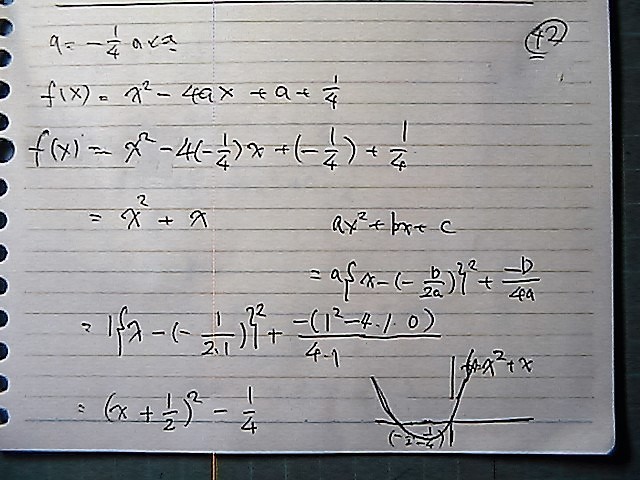 a = -1/4 a < a
42
f(x) = x² - 4ax + a + 1/4
f(x) = x² - 4(-1/4)x + (-1/4) + 1/4
= x² + x
ax² + bx + c
= a{x - (-b/2a)}² + -D/4a
= 1{x - (-1/2·1)}² + -(1² - 4·1·0)/4·1
x² + x
= (x + 1/2)² - 1/4